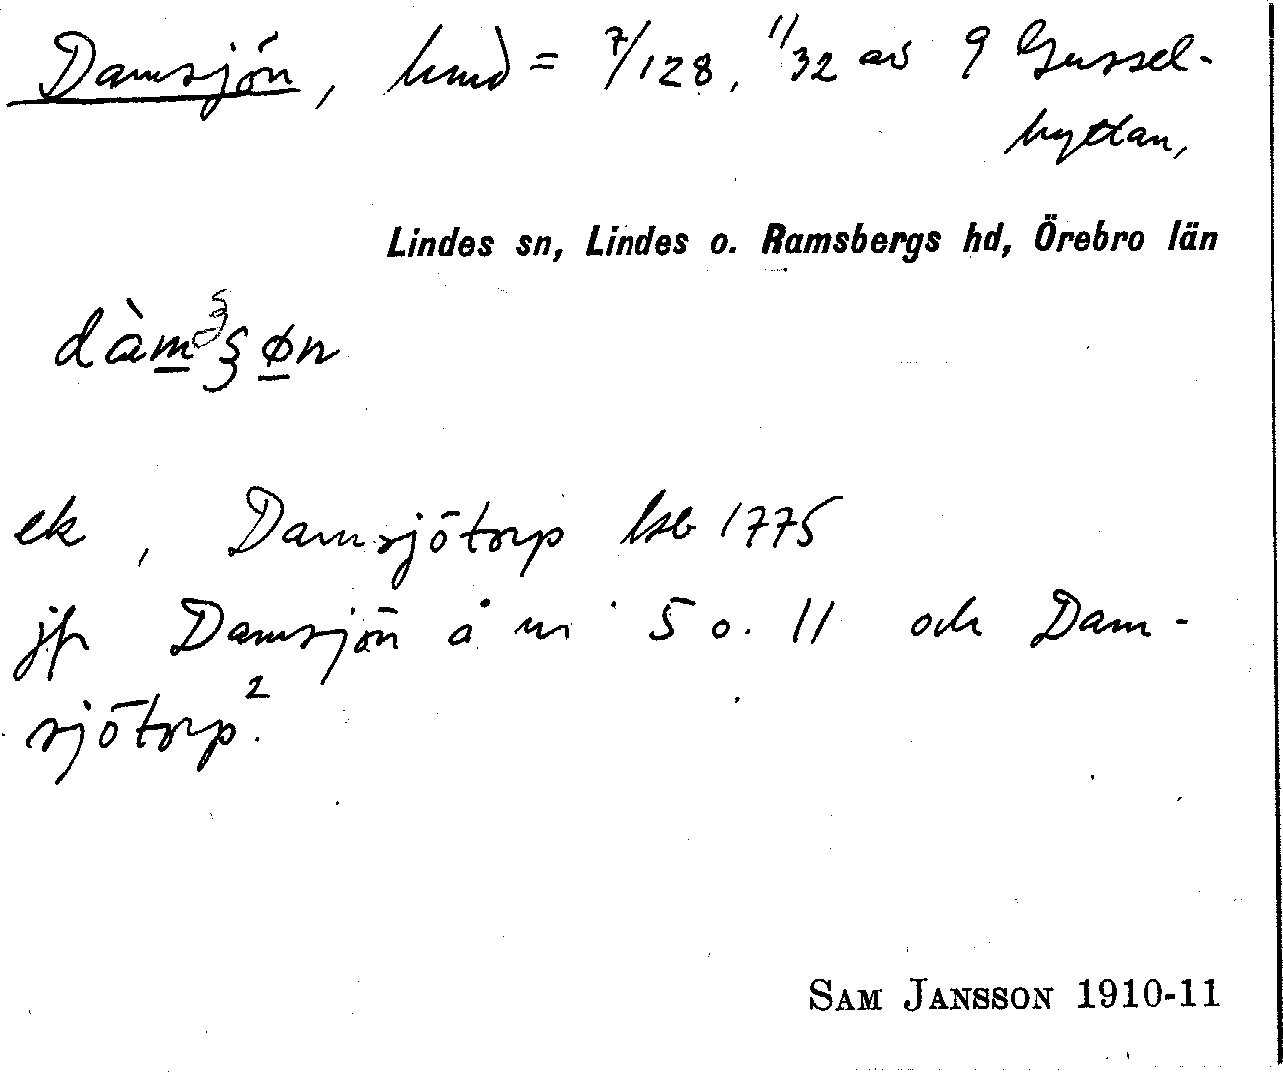 Damsjön, hmd = 7/128, 11/32 av 9 Gussel-
hyttan,
Lindes sn, Lindes o. Ramsbergs hd, Örebro län
dàm³şøn
ek, Damsjötorp hsb 1775
jfr Damsjön å nr 5 o. 11 och Dam-
sjötorp².
SAM JANSSON 1910-11